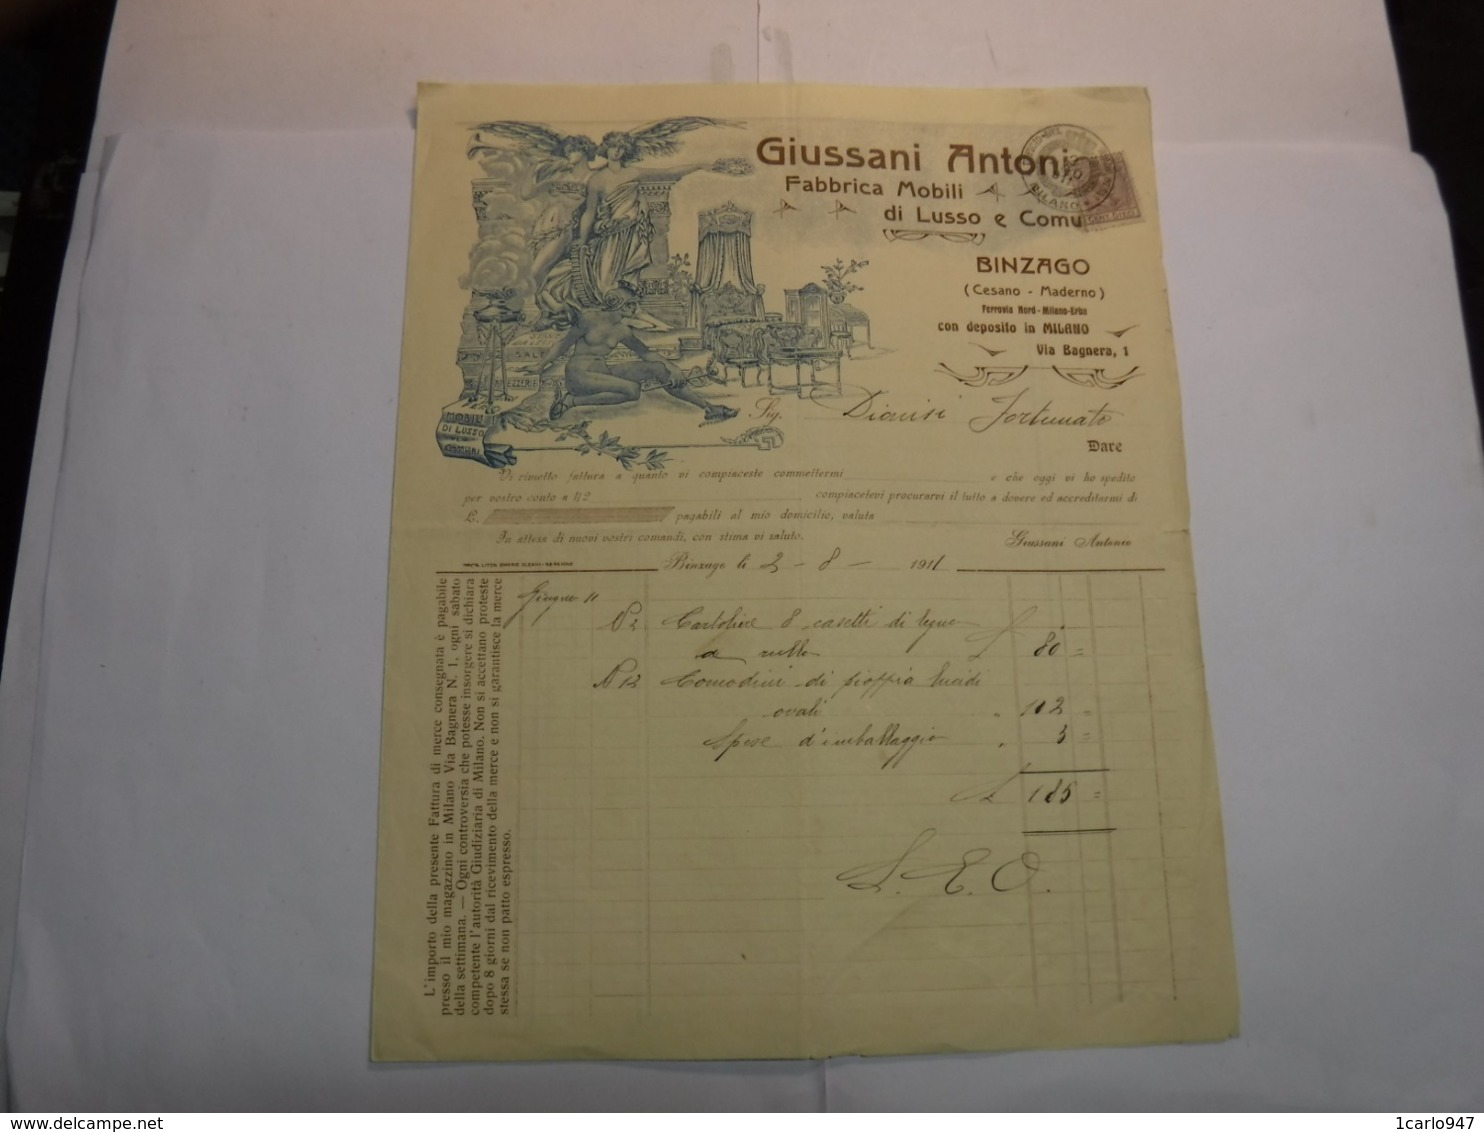 Giussani Antonio
Fabbrica Mobili
di Lusso e Comu
MILANO
CENT. DIECI
BINZAGO
(Cesano - Maderno)
Ferrovia Nord - Milano-Erba
con deposito in MILANO
Via Bagnera, 1
SALE
MOBILI
DI LUSSO
E
COMUNI
Sig. Dionisi Fortunato
Dare
Vi rimetto fattura a quanto vi compiaceste commettermi e che oggi vi ho spedito
per vostro conto a 1/2 compiacetevi procurarvi il tutto a dovere ed accreditarmi di
£. pagabili al mio domicilio, valuta
In attesa di nuovi vostri comandi, con stima vi saluto.
Giussani Antonio
Binzago li 2 - 8 - 1911
Giugno 11
N 2 Cartoliere 8 casetti di legno
a rullo £ 80 =
N 12 Comodini di pioppia lucidi
ovali " 102 =
Spese d'imballaggio " 3 =
£ 185 =
S. E. O.
L'importo della presente Fattura di merce consegnata è pagabile
presso il mio magazzino in Milano Via Bagnera N. 1, ogni sabato
della settimana. — Ogni controversia che potesse insorgere si dichiara
competente l'autorità Giudiziaria di Milano. Non si accettano proteste
dopo 8 giorni dal ricevimento della merce e non si garantisce la merce
stessa se non patto espresso.
delcampe.net
1carlo947